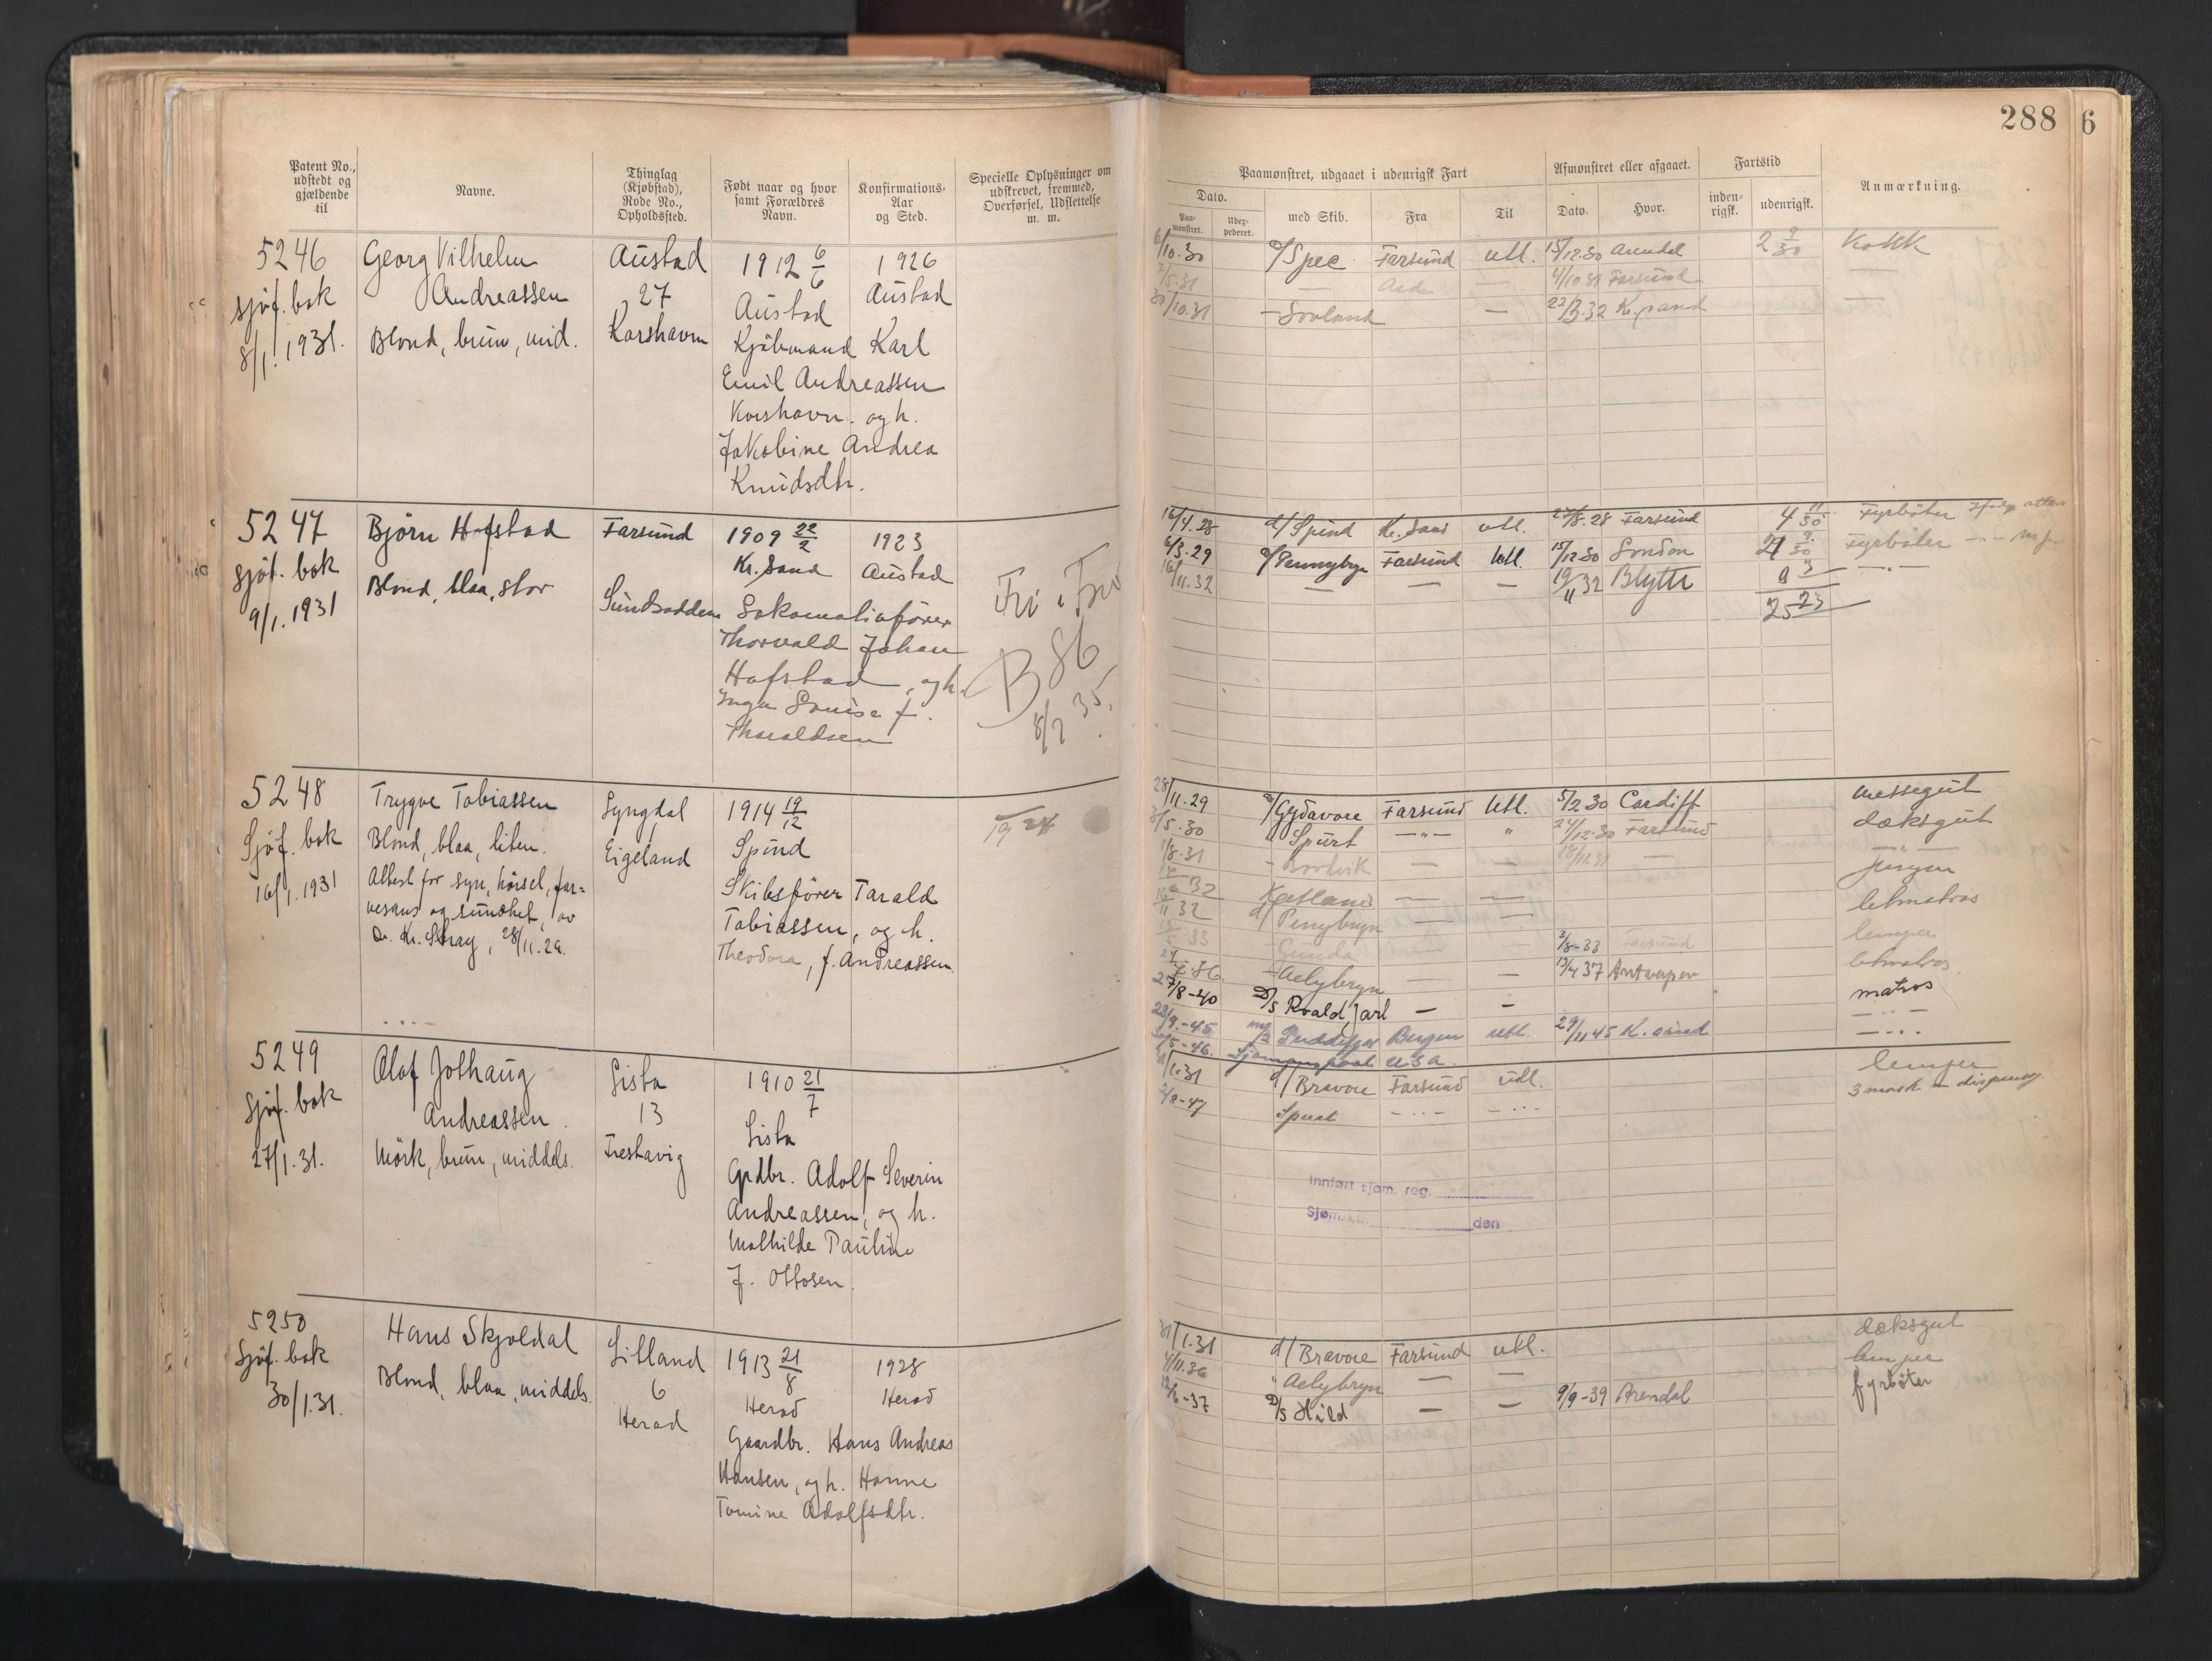 288
6
Patent No., udstedt og gjældende til
Navne.
Thinglag (Kjøbstad), Rode No., Opholdssted.
Født naar og hvor samt Forældres Navn.
Konfirmations-Aar og Sted.
Specielle Oplysninger om udskrevet, fremmed, Overførsel, Udslettelse m. m.
Paamønstret, udgaaet i udenrigsk Fart
Afmønstret eller afgaaet.
Fartstid
Anmærkning.
Dato.
med Skib.
Fra
Til
Dato.
Hvor.
inden-rigsk.
udenrigsk.
5246
sjöf. bok
8/1. 1931.
Georg Vilhelm
Andreassen
Blond, brun, mid.
Austad
27
Korshavn
1912 6/6
Austad
Kjöbmand Karl
Emil Andreassen
Korshavn. og h.
Jakobine Andrea
Knudsdtr.
1926
Austad
/10.30 Spec Farsund utl. 15/12.30 Arendal 2 9/30 Kokk
/5.31 — 4/10.31 Farsund —
30/10.31 — Sorland — 22/3.32 Kr.sand —
5247
sjöf. bok
9/1. 1931
Björn Hofstad
Blond, blaa, stor
Farsund
Sundsodden
1909 22/2
Kr. Sand
Lokomotivförer
Thorvald Johan
Hofstad, og h.
Inga Louise f.
Tharaldsen
1923
Austad
B 86
8/7 35.
16/4.28 d/ Spind Kr. Sand utl. 27/8.28 Farsund 4 11/30 Fyrböter
6/3.29 Pennybryn Farsund Utl. 15/12.30 London 21 9/30 Fyrböter
16/11.32 — — — 19/11 32 Blyth
25 23
5248
Sjöf. bok
16/1. 1931
Trygve Tobiassen
Blond, blaa, liten.
Attest for syn, hörsel, far=
vesans og sundhet, av
Dr. Kr. Stray, 28/11.29.
Lyngdal
Eigeland
1914 19/12
Spind
Skibsförer Tarald
Tobiassen, og h.
Theodora, f. Andreassen.
28/11.29 Gydavore Farsund Utl. 5/2 30 Cardiff messegut
/5.30 " Spurt — " — " 24/12.30 Farsund dæksgut
1/8.31 - — — 18/11.31 — jungm
32 — — letmatros
11 32 d/ Penybryn — — lemper
33 - Gunda — 3/8-33 Farsund letmatros
36 - Aelybryn — — 13/4 37 Antwerpen matros
27/8-40 D/S Roald Jarl — —
23/9.-45 Bergen utl. 29/11 45 K. sand
/5-46. U S A.
5249
Sjöf. bok
27/1.31.
Olaf Jolhaug
Andreassen.
Mörk, brun, middels.
Lista
13
Trestavig
1910 21/7
Lista
Grdbr. Adolf Severin
Andreassen, og h.
Mathilde Pauline
f. Ottosen.
/1.31 d/ Bravore Farsund utl. lemper
3 mdsk m dispensa
-47 Spurt
Innført sjøm. reg.
Sjøm.kt. den
5250
Sjöf. bok
30/1.31.
Hans Skjoldal
Blond, blaa, middels.
Litland
6
Herad
1913 21/8
Herad
Gaardbr. Hans Andreas
Hansen, og h. Hanne
Tomine Adolfsdtr.
1928
Herad
31/1.31 d/ Bravore Farsund utl. dæksgut
/11.36 " Aelybryn — — lemper
12/6-37 D/S Hild — — 9/9-39 Arendal fyrböter